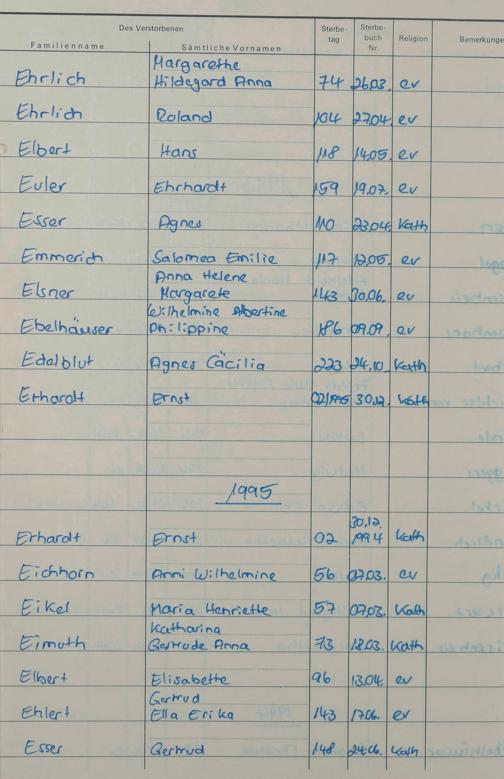 Des Verstorbenen Sterbe- Sterbe- Religion Bemerkunge
Familienname Sämtliche Vornamen tag buch Nr.
Margarethe
Ehrlich Hildegard Anna 74 26.03. ev
Ehrlich Roland 104 27.04. ev
Elbert Hans 118 14.05. ev
Euler Ehrhardt 159 19.07. ev
Esser Agnes 110 23.04. Kath
Emmerich Salomea Emilie 117 12.05. ev
Anna Helene
Elsner Margarete 143 30.06. ev
Wilhelmine Albertine
Ebelhäuser Philippine 186 09.09. ev
Edelblut Agnes Cäcilia 223 24.10 Kath
Erhardt Ernst 02/1995 30.12. Kath
1995
30.12.
Erhardt Ernst 02 1994 Kath
Eichhorn Anni Wilhelmine 56 07.03. ev
Eikel Maria Henriette 57 07.03. Kath
Katharina
Eimuth Gertrude Anna 73 18.03. Kath
Elbert Elisabethe 96 13.04. ev
Gertrud
Ehlert Ella Erika 143 17.06. ev
Esser Gertrud 148 24.06. Kath